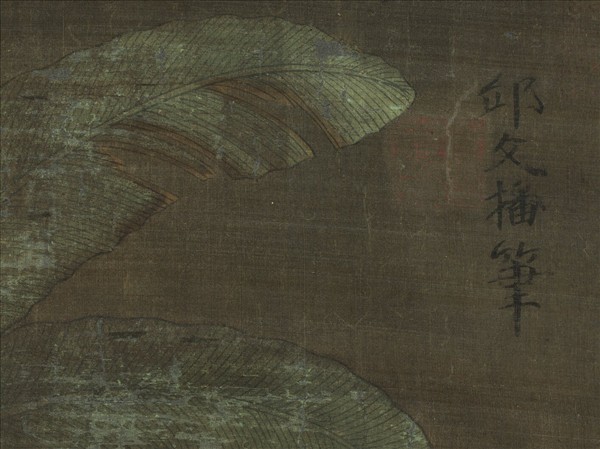 邱文播筆